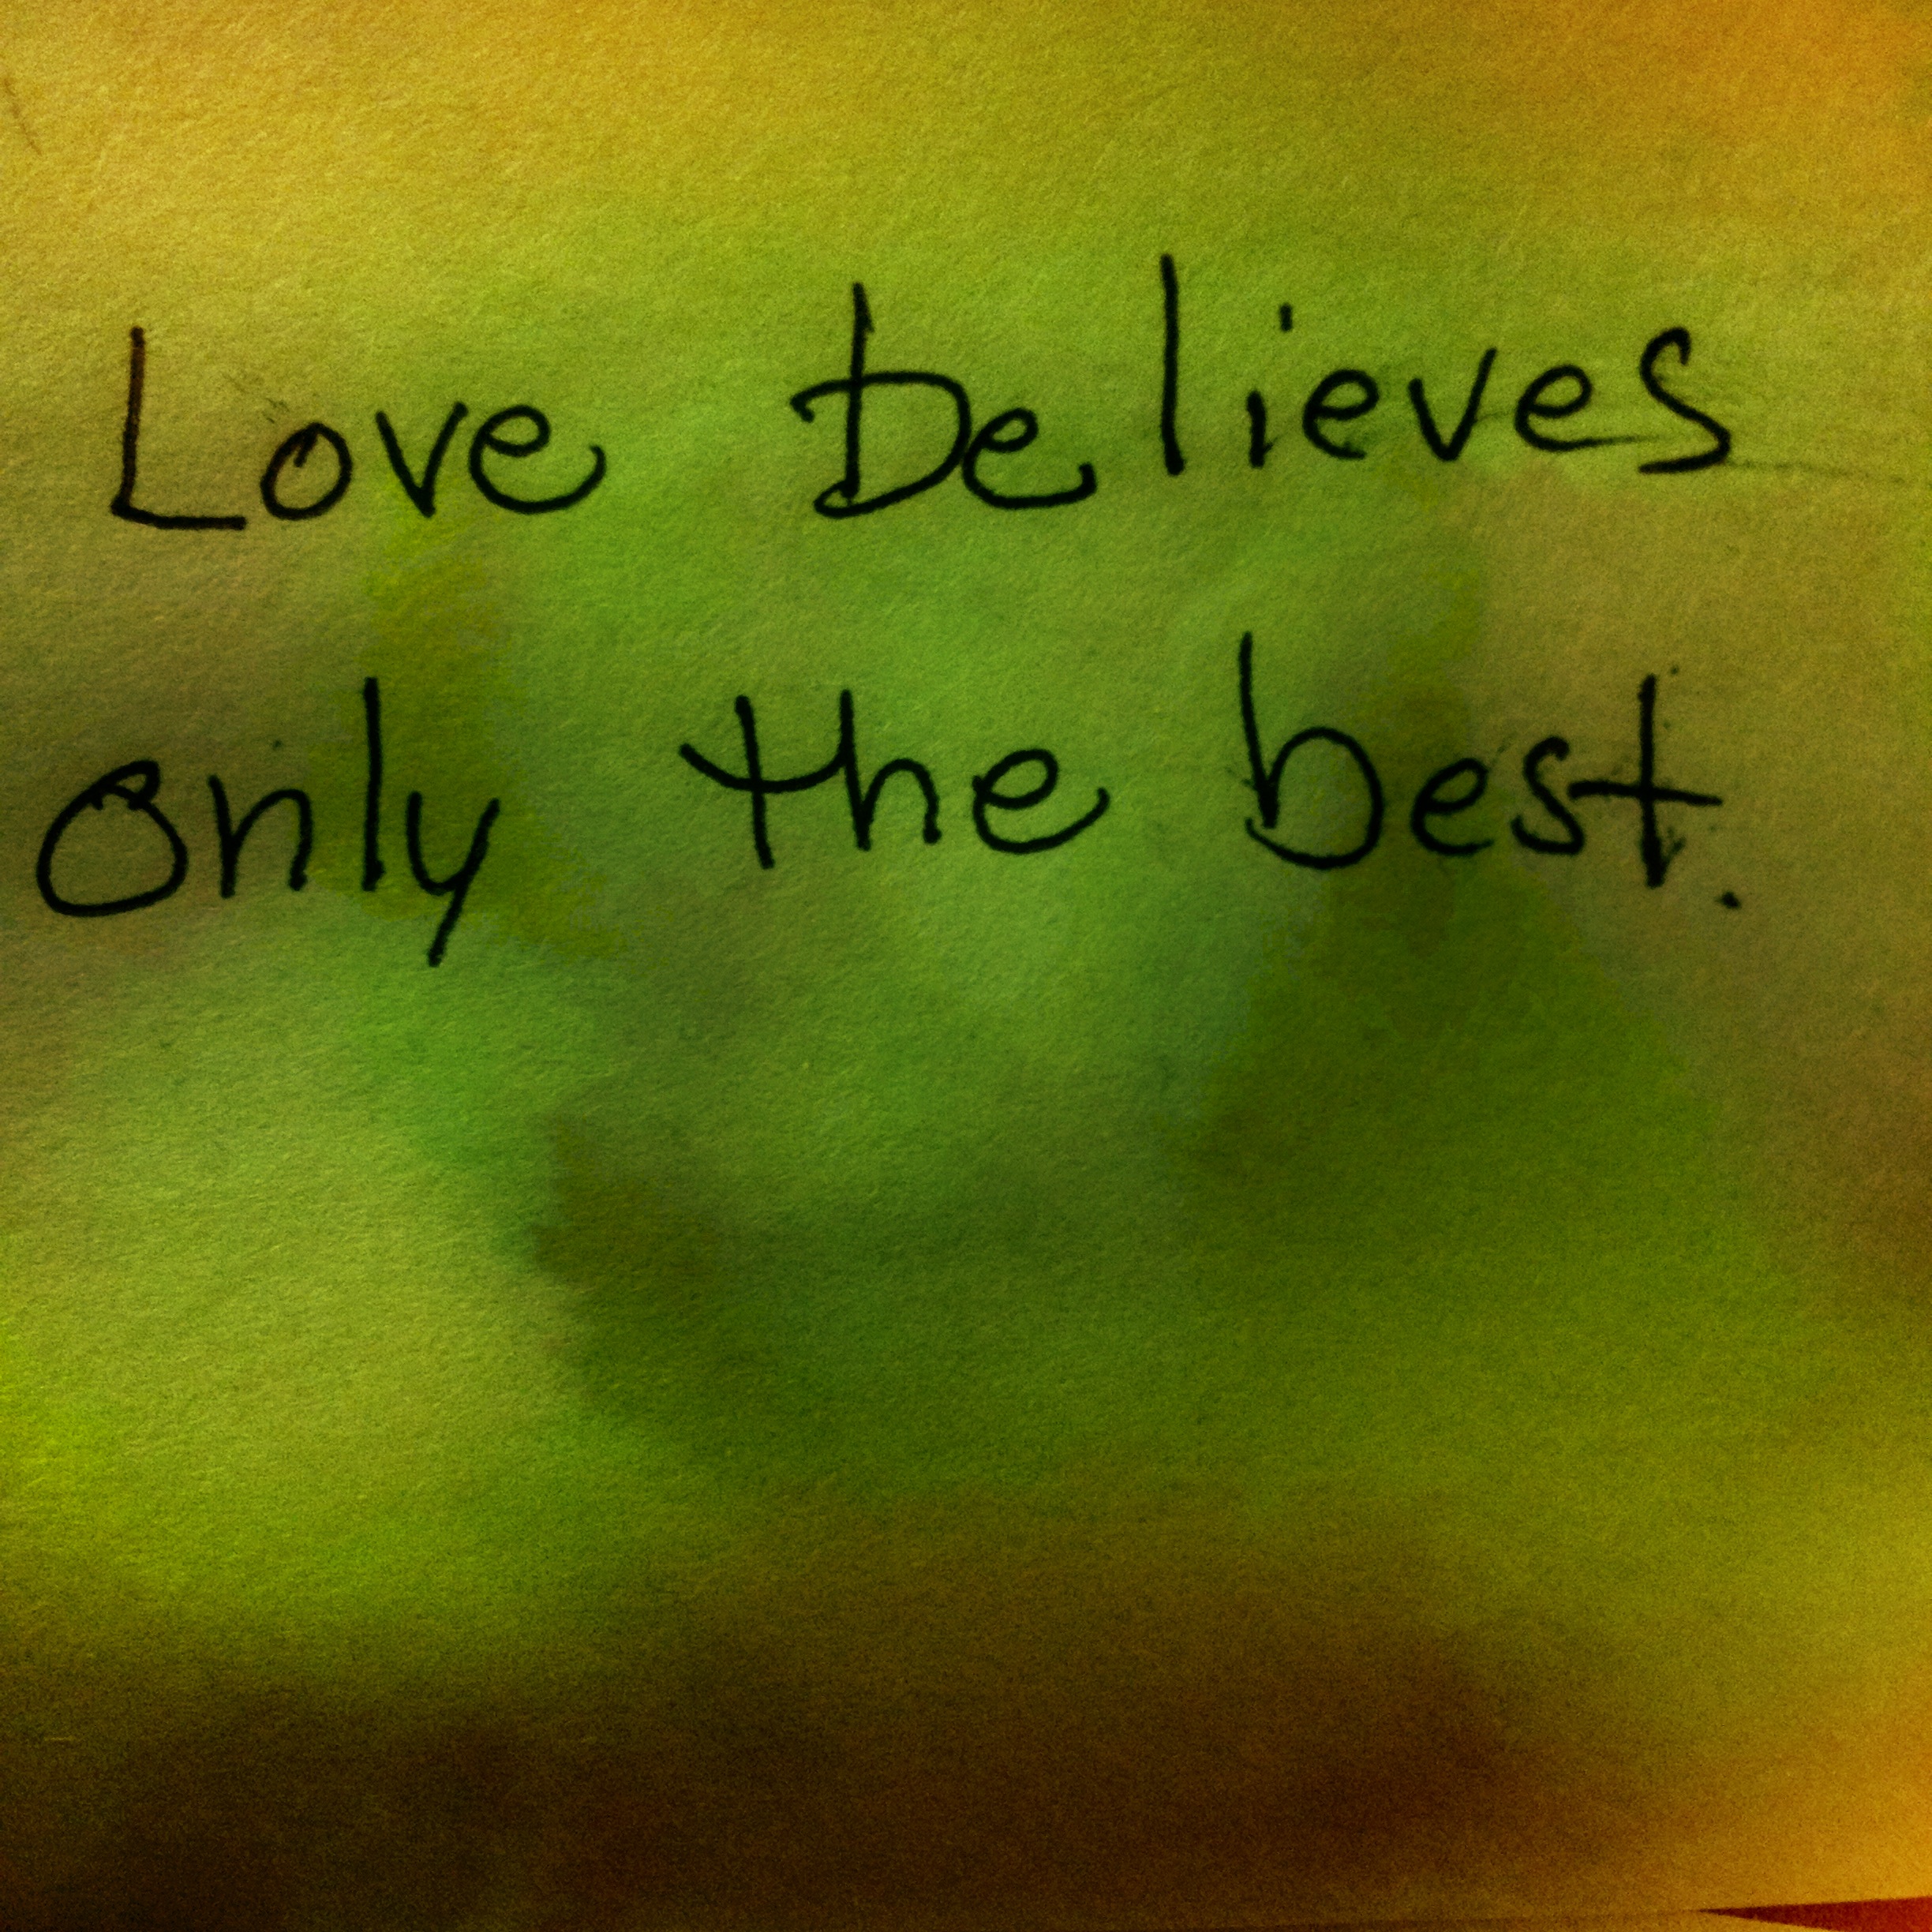 Love believes
only the best.